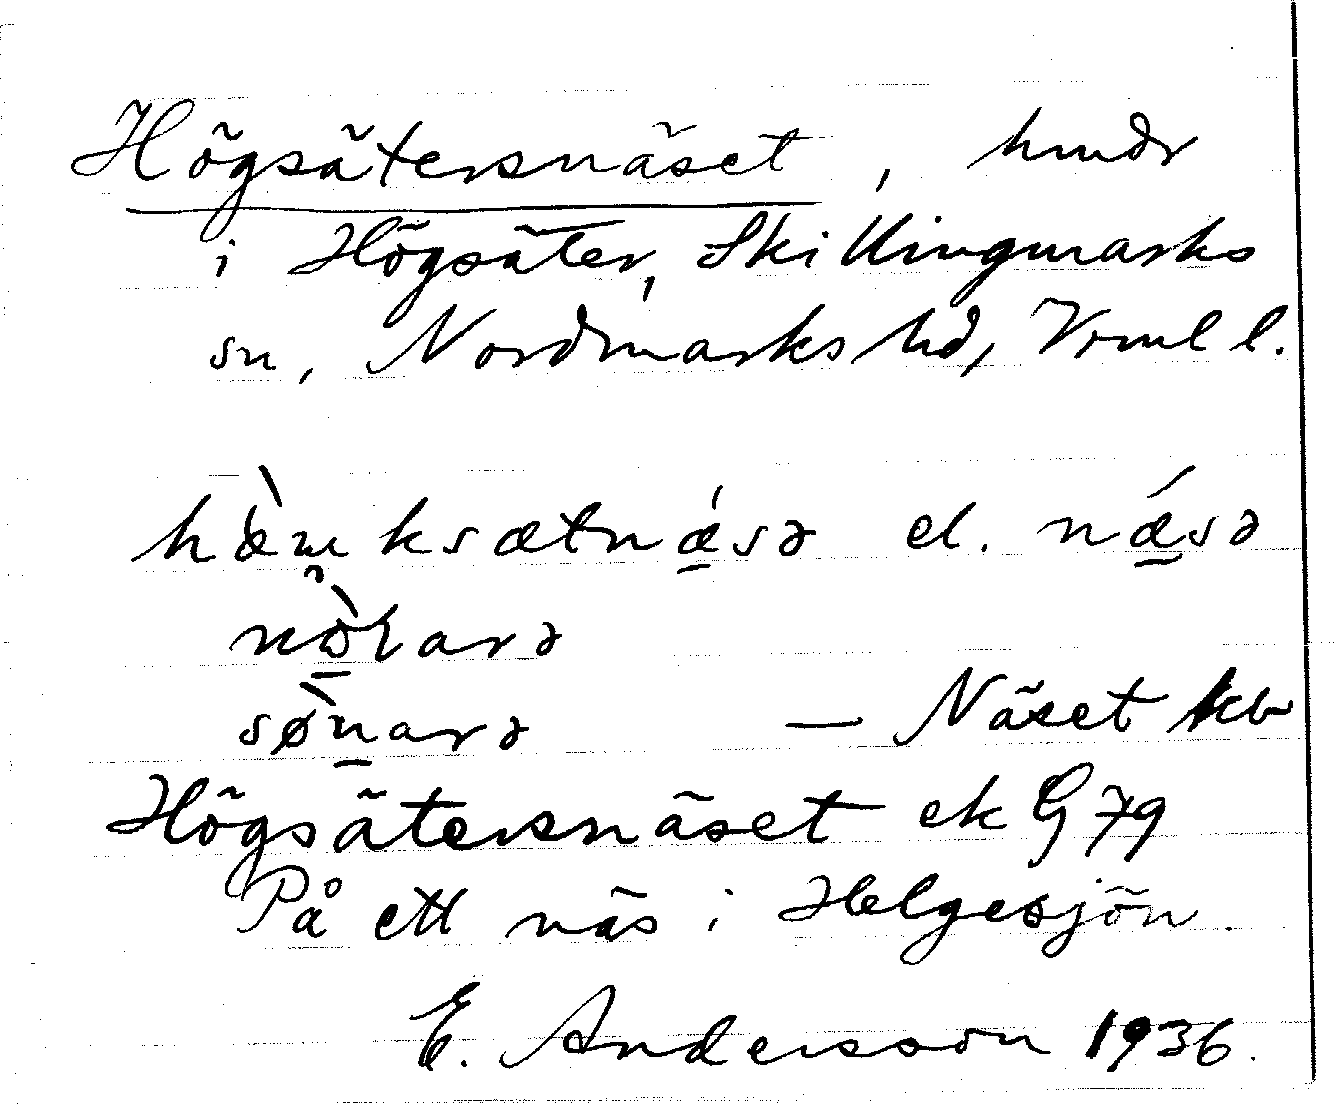 Högsätersnäset, hmdr
i Högsäter, Skillingmarks
sn, Nordmarks hd, Vrml l.
hæ̀ŋksætnǽ̲sə el. nǽ̲sə
nò̲ɽarə
sø̀n̲arə — Näset kb
Högsätersnäset ek G 79
På ett näs i Helgesjön.
E. Andersson 1936.